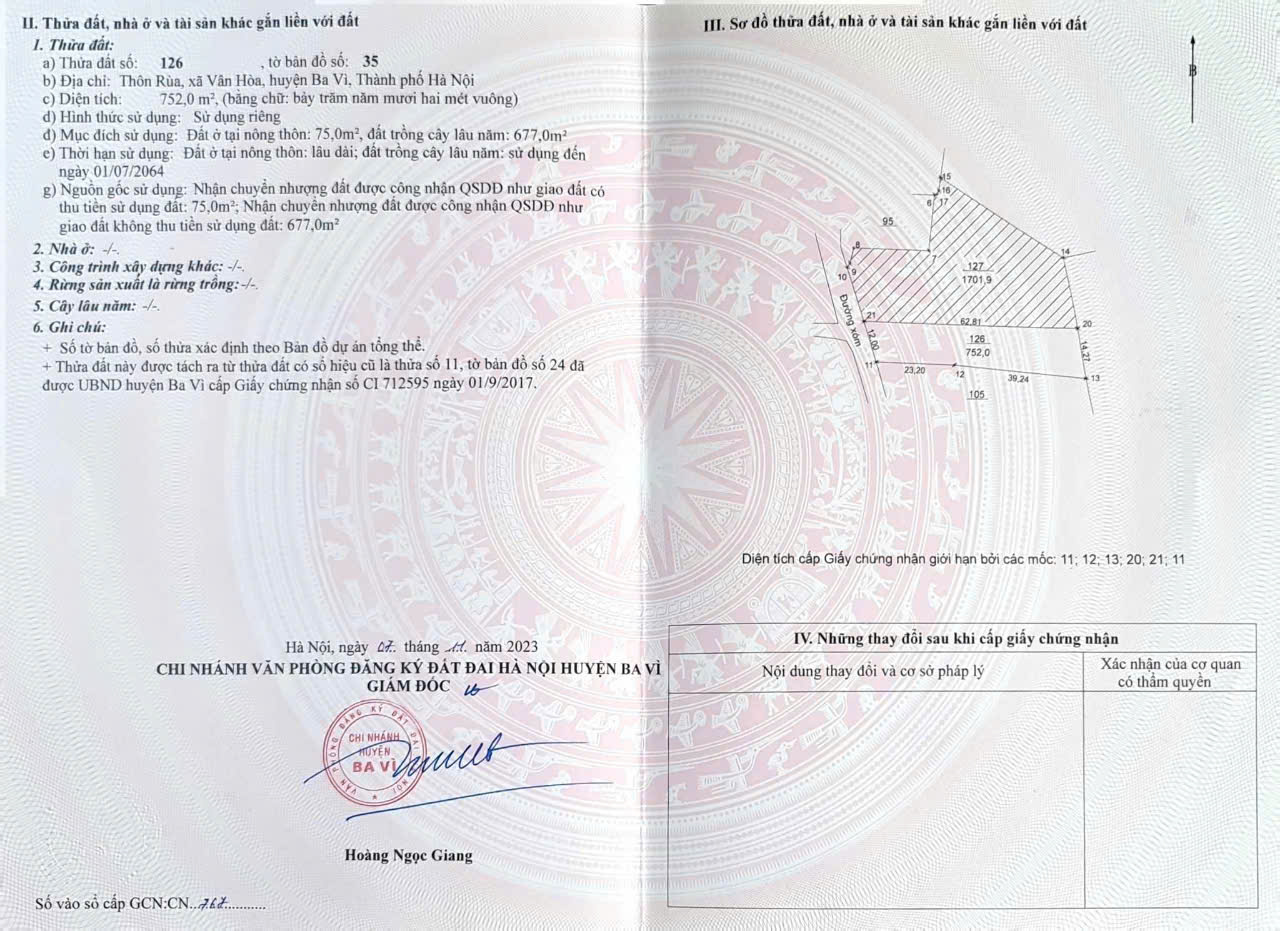 II. Thửa đất, nhà ở và tài sản khác gắn liền với đất
1. Thửa đất:
a) Thửa đất số: 126 , tờ bản đồ số: 35
b) Địa chỉ: Thôn Rùa, xã Vân Hòa, huyện Ba Vì, Thành phố Hà Nội
c) Diện tích: 752,0 m², (bằng chữ: bảy trăm năm mươi hai mét vuông)
d) Hình thức sử dụng: Sử dụng riêng
đ) Mục đích sử dụng: Đất ở tại nông thôn: 75,0m², đất trồng cây lâu năm: 677,0m²
e) Thời hạn sử dụng: Đất ở tại nông thôn: lâu dài; đất trồng cây lâu năm: sử dụng đến
ngày 01/07/2064
g) Nguồn gốc sử dụng: Nhận chuyển nhượng đất được công nhận QSDĐ như giao đất có
thu tiền sử dụng đất: 75,0m²; Nhận chuyển nhượng đất được công nhận QSDĐ như
giao đất không thu tiền sử dụng đất: 677,0m²
2. Nhà ở: -/-.
3. Công trình xây dựng khác: -/-.
4. Rừng sản xuất là rừng trồng:-/-.
5. Cây lâu năm: -/-.
6. Ghi chú:
+ Số tờ bản đồ, số thửa xác định theo Bản đồ dự án tổng thể.
+ Thửa đất này được tách ra từ thửa đất có số hiệu cũ là thửa số 11, tờ bản đồ số 24 đã
được UBND huyện Ba Vì cấp Giấy chứng nhận số CI 712595 ngày 01/9/2017.
Hà Nội, ngày 07. tháng .11. năm 2023
CHI NHÁNH VĂN PHÒNG ĐĂNG KÝ ĐẤT ĐAI HÀ NỘI HUYỆN BA VÌ
GIÁM ĐỐC
VĂN PHÒNG ĐĂNG KÝ ĐẤT ĐAI HÀ NỘI
CHI NHÁNH
HUYỆN
BA VÌ
Hoàng Ngọc Giang
Số vào sổ cấp GCN:CN..767..........
III. Sơ đồ thửa đất, nhà ở và tài sản khác gắn liền với đất
B
15
16
6
17
95
8
7
14
9
10
127
1701,9
Đường xóm
21
62,81
20
12,00
126
752,0
14,27
11
23,20
12
39,24
13
105
Diện tích cấp Giấy chứng nhận giới hạn bởi các mốc: 11; 12; 13; 20; 21; 11
IV. Những thay đổi sau khi cấp giấy chứng nhận
Nội dung thay đổi và cơ sở pháp lý
Xác nhận của cơ quan
có thẩm quyền